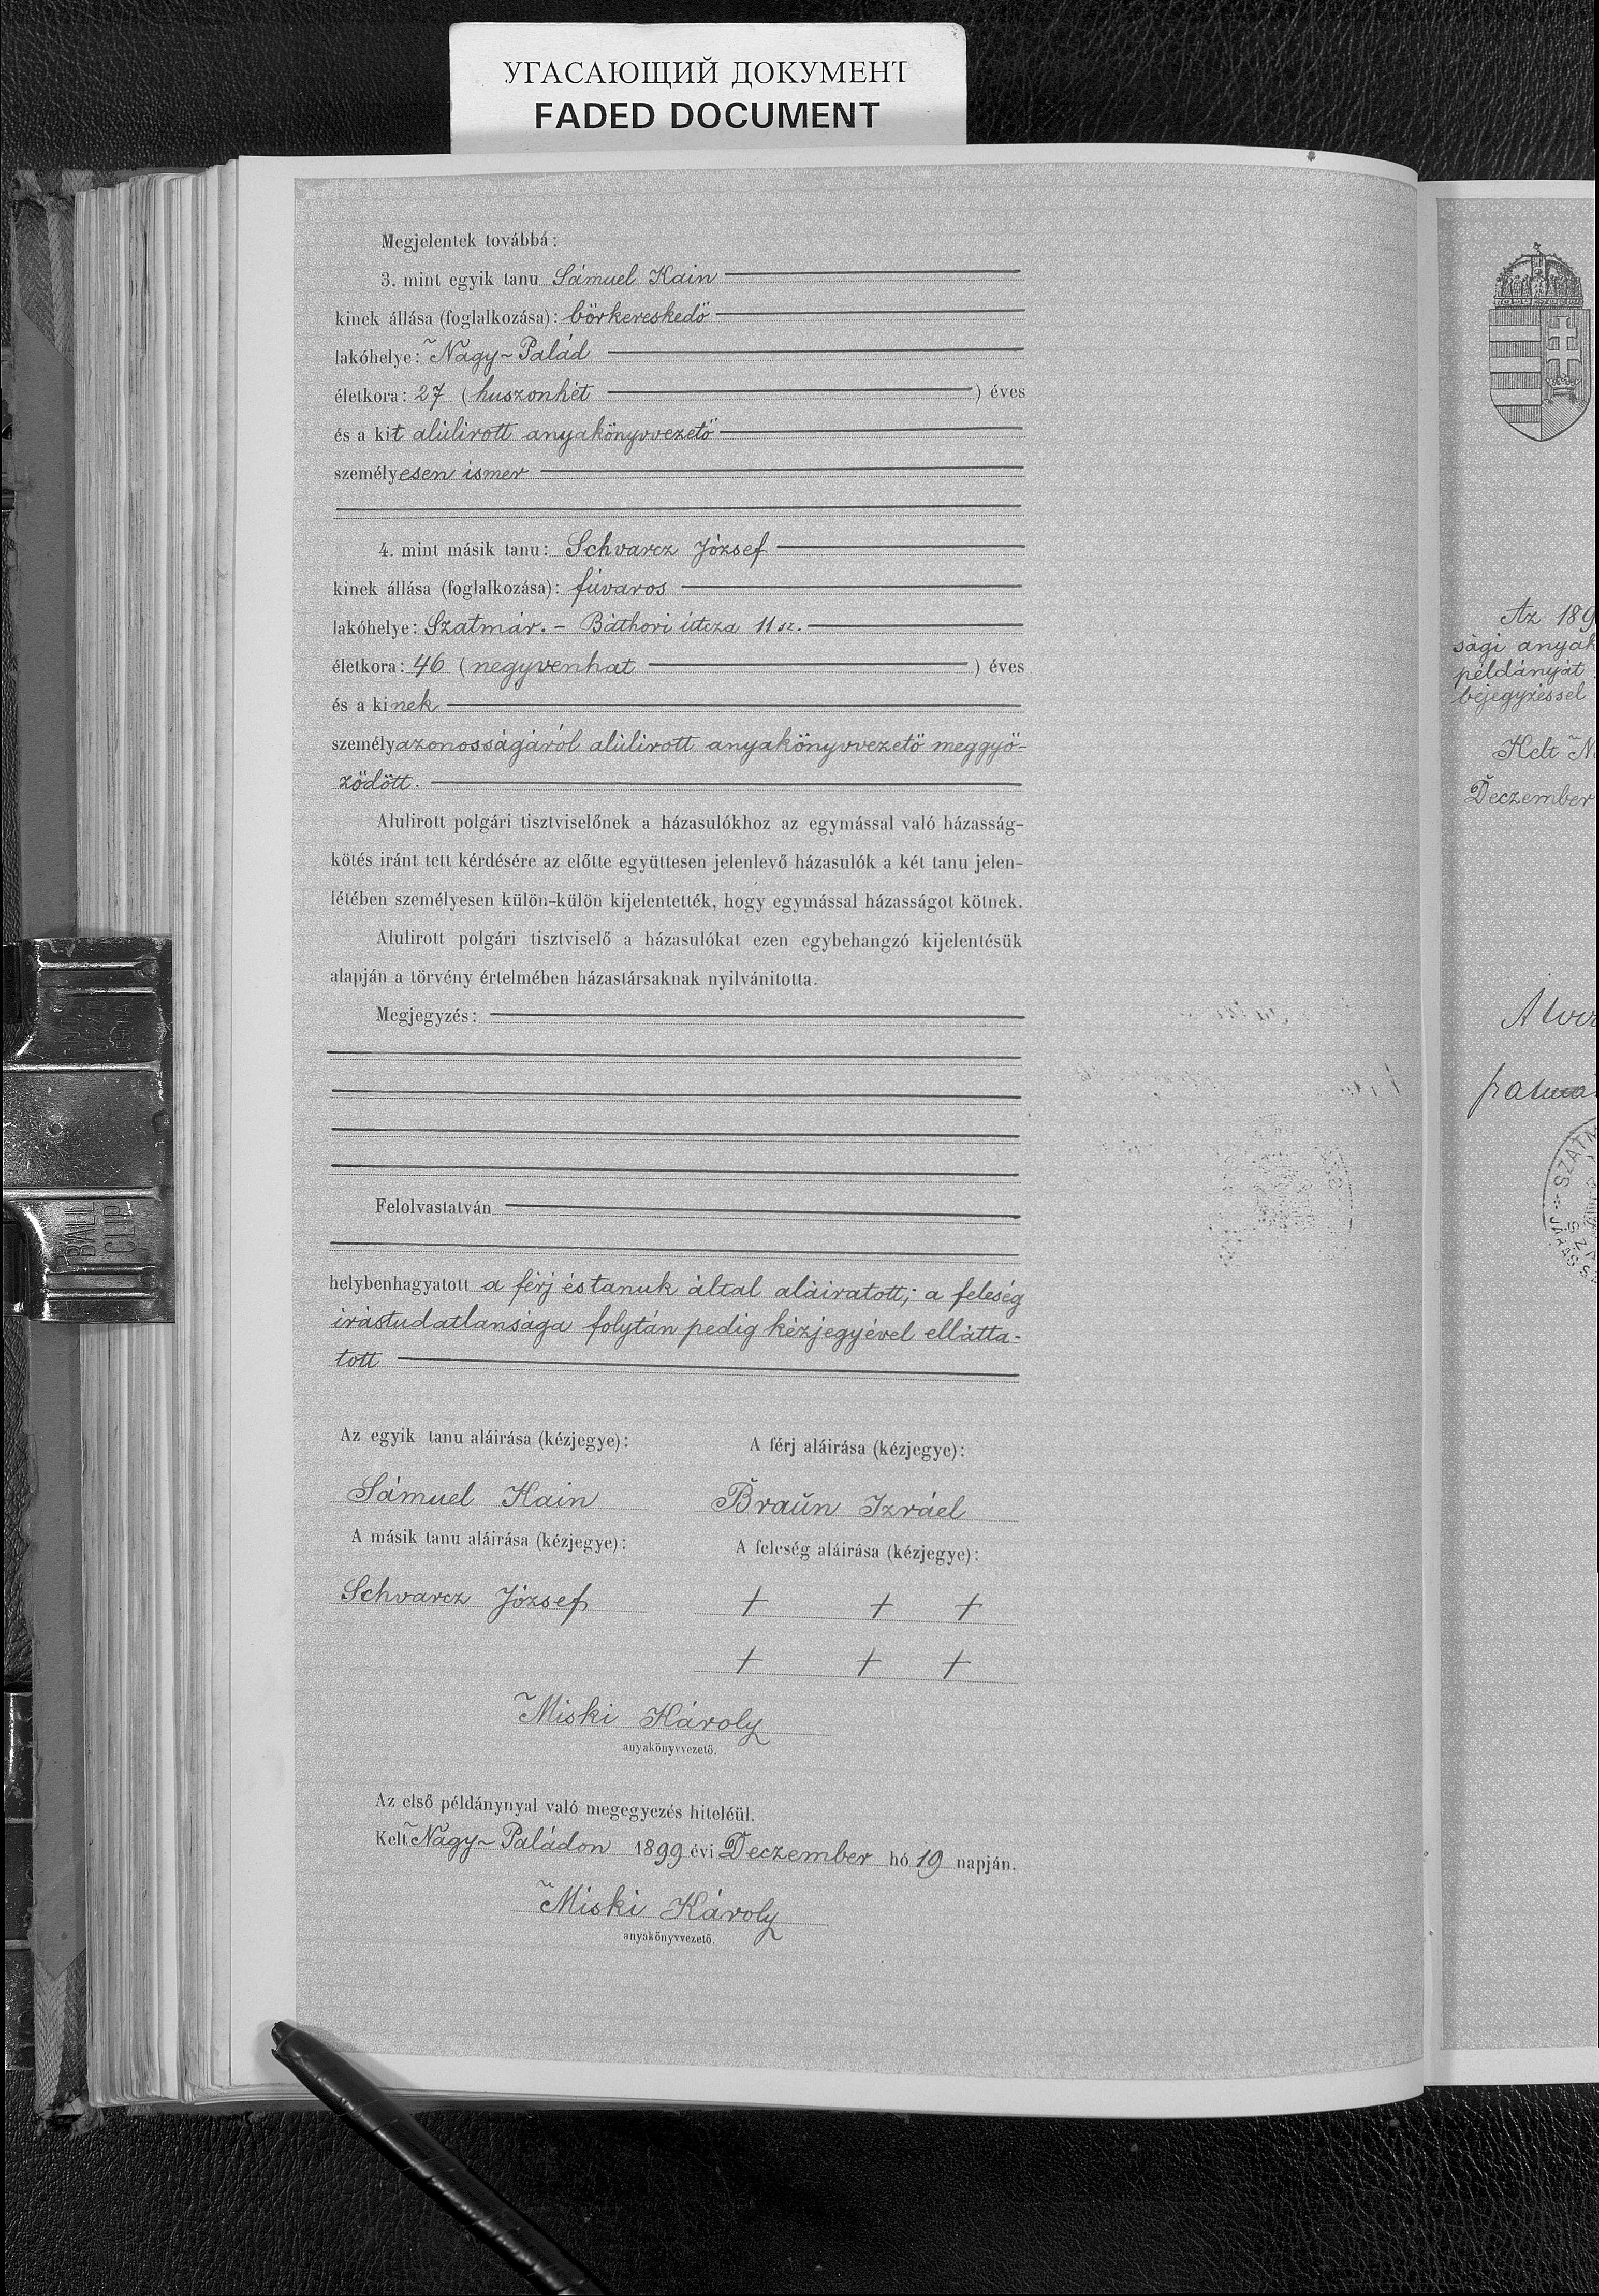 УГАСАЮЩИЙ ДОКУМЕНТ
FADED DOCUMENT
Megjelentek továbbá:
3. mint egyik tanu Sámuel Kain
kinek állása (foglalkozása): börkereskedö
lakóhelye: Nagy-Palád
életkora: 27 (huszonhét ) éves
és a kit alúlirott anyakönyvvezetö
személyesen ismer
4. mint másik tanu: Schvarcz József
kinek állása (foglalkozása): fúvaros
lakóhelye: Szatmár. - Báthori útcza 11 sz.
életkora: 46 (negyvenhat ) éves
és a kinek
személyazonosságáról alúlirott anyakönyvvezetö meggyö-
zödött.
Alulirott polgári tisztviselőnek a házasulókhoz az egymással való házasság-
kötés iránt tett kérdésére az előtte együttesen jelenlevő házasulók a két tanu jelen-
létében személyesen külön-külön kijelentették, hogy egymással házasságot kötnek.
Alulirott polgári tisztviselő a házasulókat ezen egybehangzó kijelentésük
alapján a törvény értelmében házastársaknak nyilvánitotta.
Megjegyzés:
Felolvastatván
helybenhagyatott a férj és tanuk által aláiratott; a feleség
irástudatlansága folytán pedig kézjegyével ellátta-
tott
Az egyik tanu aláirása (kézjegye):
A férj aláirása (kézjegye):
Sámuel Kain
Braŭn Izráel
A másik tanu aláirása (kézjegye):
A feleség aláirása (kézjegye):
Schvarcz József
+ + +
+ + +
Miski Károly
anyakönyvvezető.
Az első példánynyal való megegyezés hiteléül.
Kelt Nagy-Paládon 1899 évi Deczember hó 19 napján.
Miski Károly
anyakönyvvezető.
Az 189
sági anyak
példányát
bejegyzéssel
Kelt
Deczember
BALL
CLIP